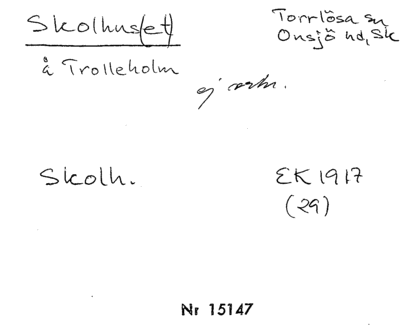 Skolhus(et)
Torrlösa sn
Onsjö hd, Sk
å Trolleholm
ej
Skolh.
EK 1917
(29)
Nr 15147